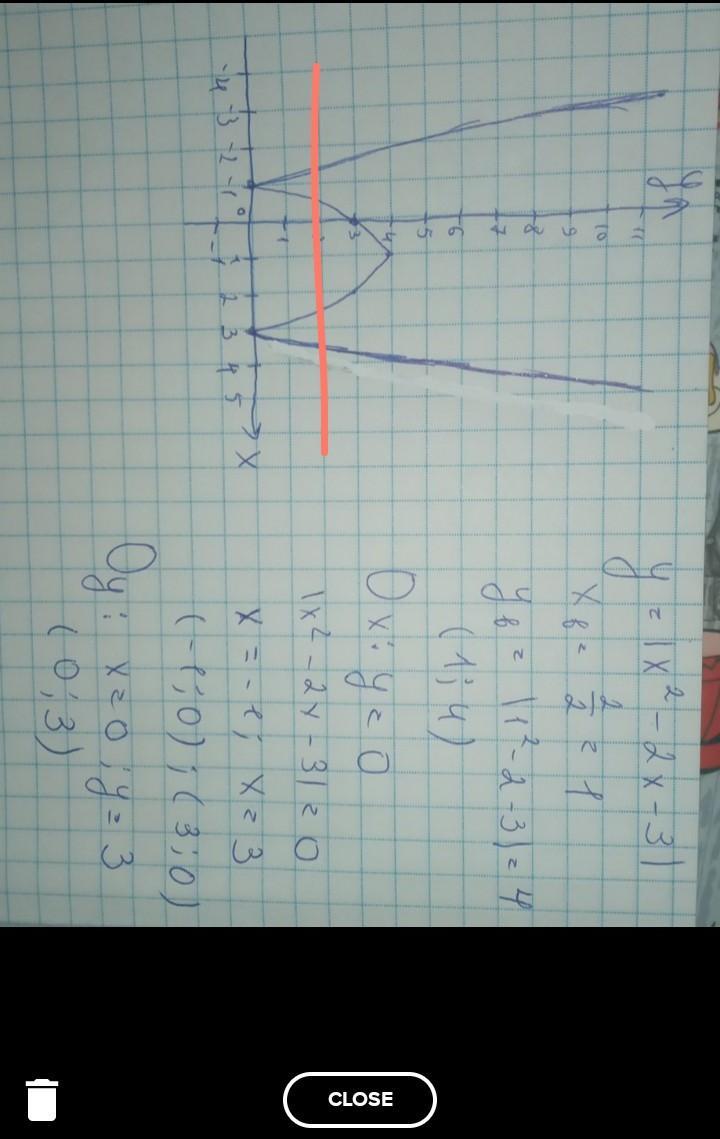 y = |x² - 2x - 3|
x в = 2/2 = 1
y в = |1² - 2 - 3| = 4
(1; 4)
Ox: y = 0
|x² - 2x - 3| = 0
x = -1; x = 3
(-1; 0); (3; 0)
Oy: x = 0; y = 3
(0; 3)
y
11
10
9
8
7
6
5
4
3
1
-4 -3 -2 -1 0 1 2 3 4 5 x
-1
CLOSE